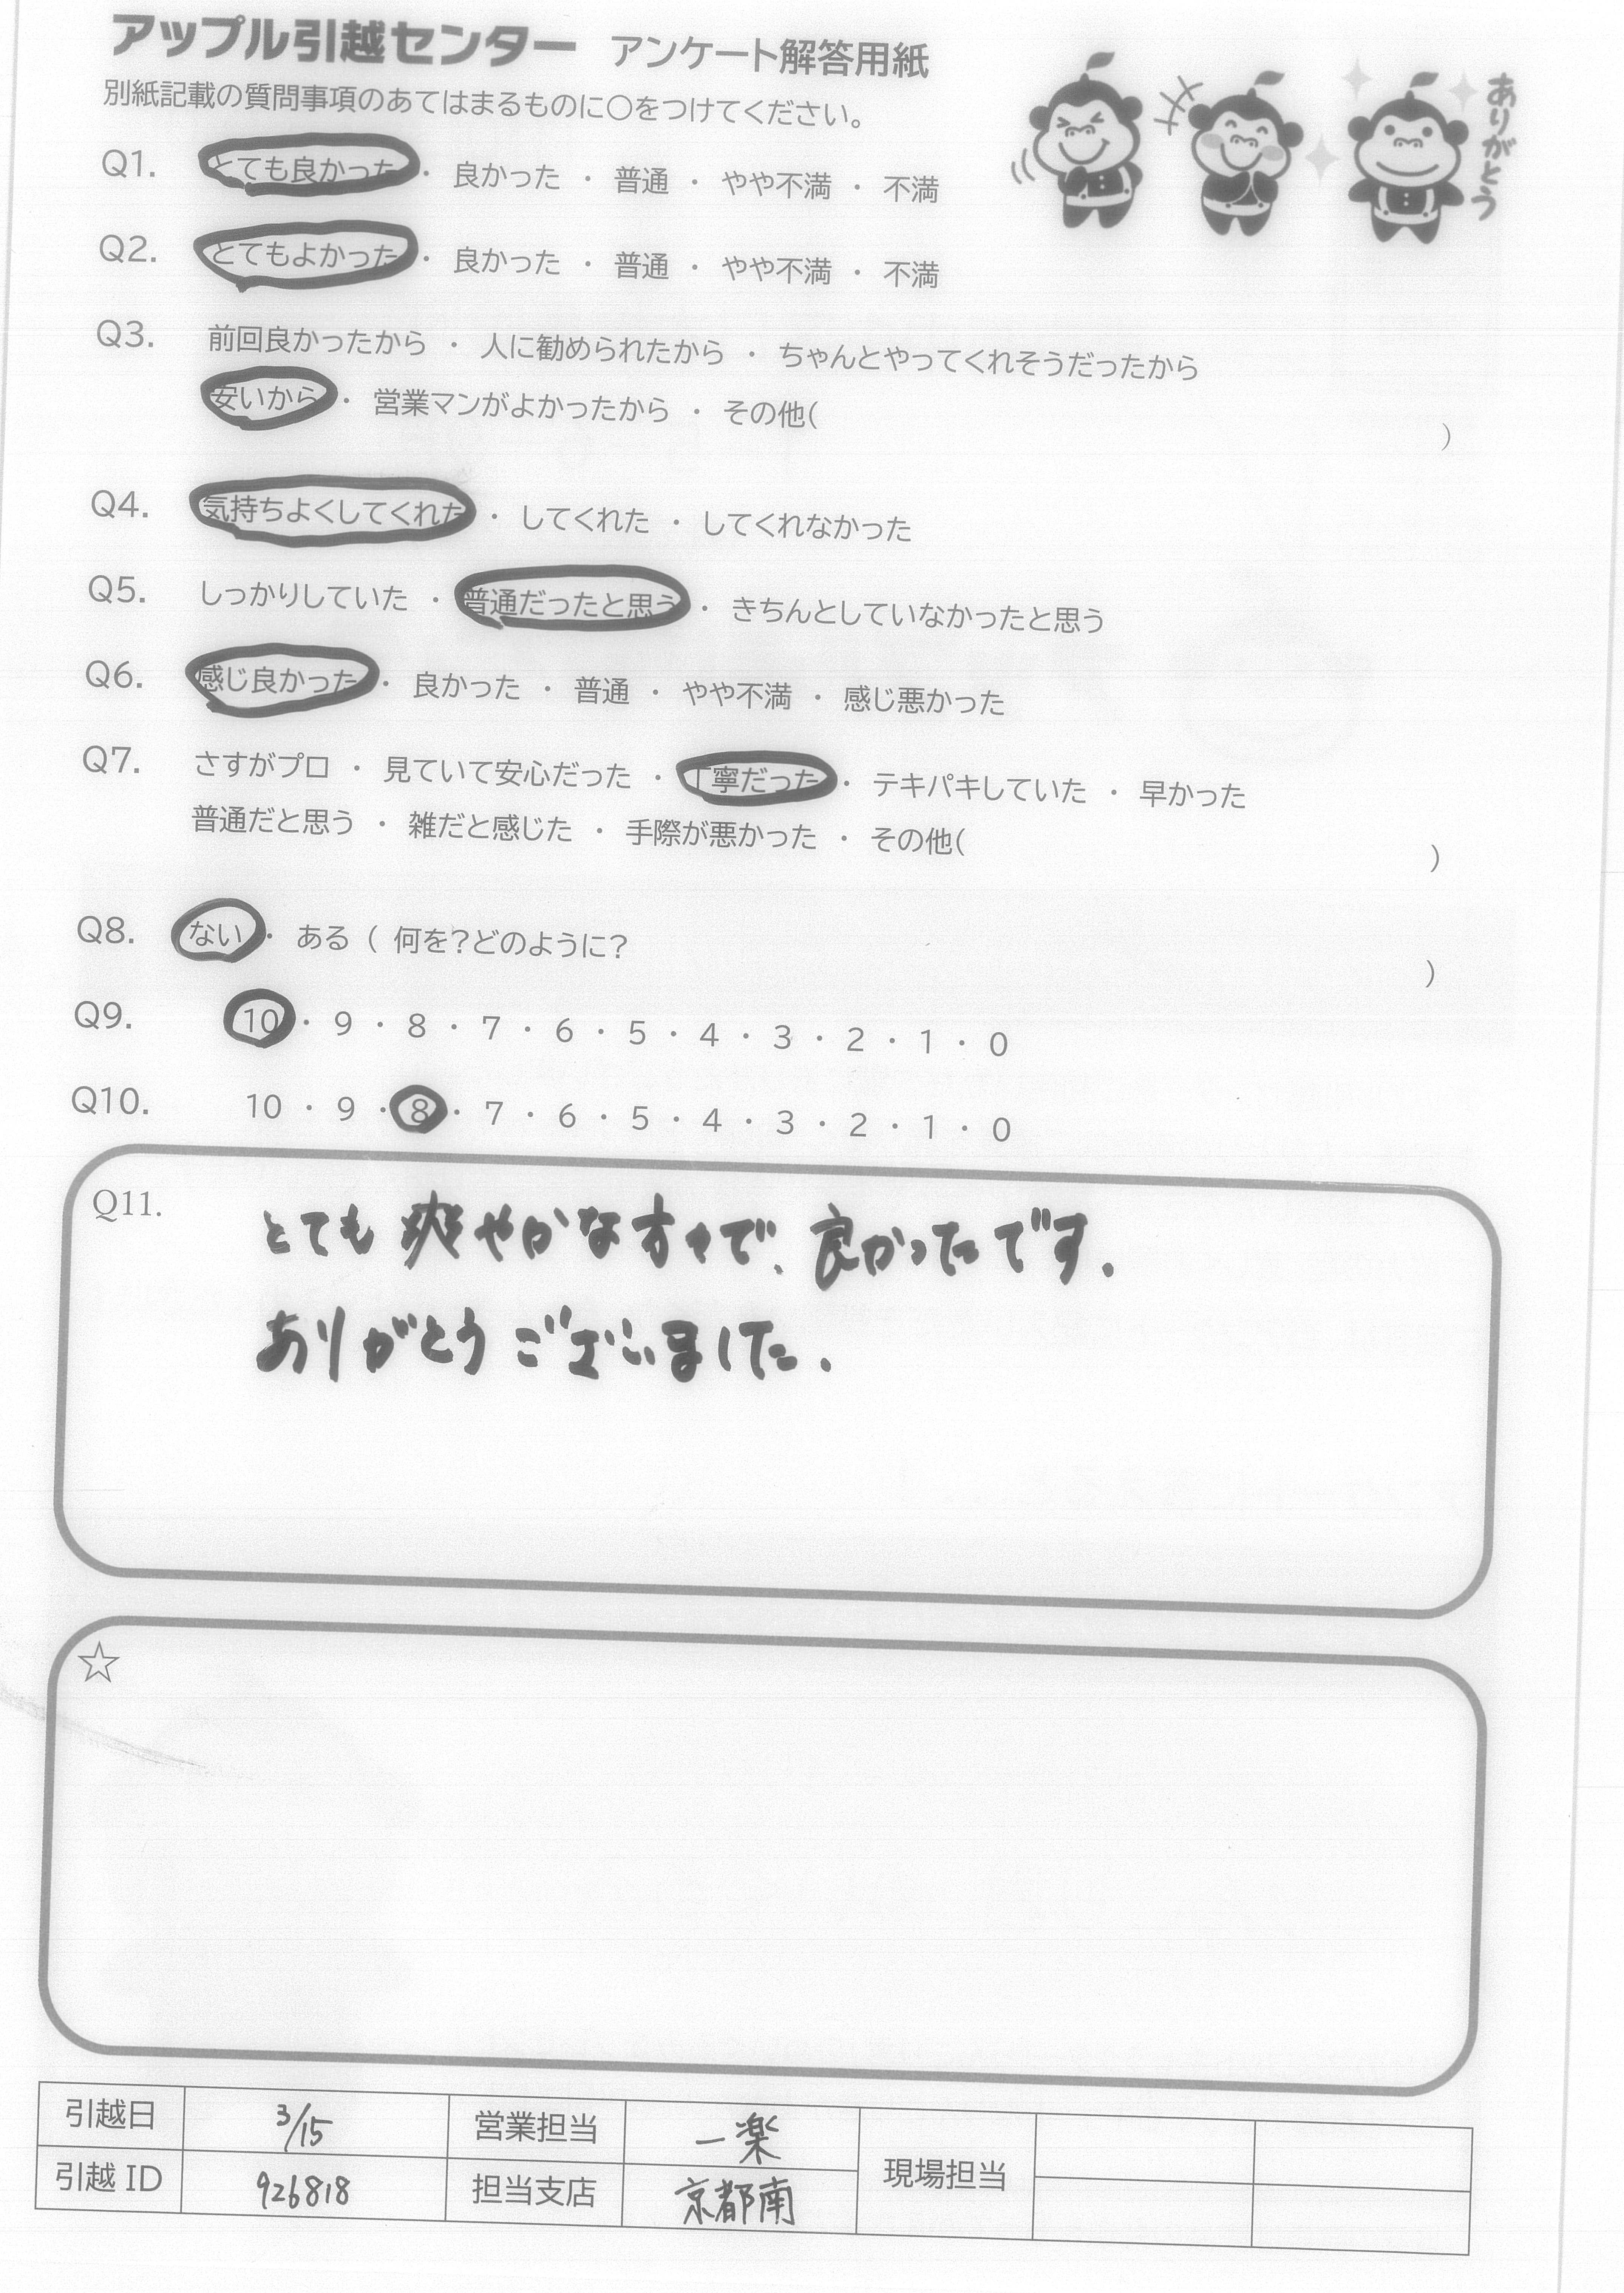 アップル引越センター アンケート解答用紙
別紙記載の質問事項のあてはまるものに〇をつけてください。
ありがとう
Q1. とても良かった ・ 良かった ・ 普通 ・ やや不満 ・ 不満
Q2. とてもよかった ・ 良かった ・ 普通 ・ やや不満 ・ 不満
Q3. 前回良かったから ・ 人に勧められたから ・ ちゃんとやってくれそうだったから
安いから ・ 営業マンがよかったから ・ その他( )
Q4. 気持ちよくしてくれた ・ してくれた ・ してくれなかった
Q5. しっかりしていた ・ 普通だったと思う ・ きちんとしていなかったと思う
Q6. 感じ良かった ・ 良かった ・ 普通 ・ やや不満 ・ 感じ悪かった
Q7. さすがプロ ・ 見ていて安心だった ・ 丁寧だった ・ テキパキしていた ・ 早かった
普通だと思う ・ 雑だと感じた ・ 手際が悪かった ・ その他( )
Q8. ない ・ ある ( 何を?どのように? )
Q9. 10 ・ 9 ・ 8 ・ 7 ・ 6 ・ 5 ・ 4 ・ 3 ・ 2 ・ 1 ・ 0
Q10. 10 ・ 9 ・ 8 ・ 7 ・ 6 ・ 5 ・ 4 ・ 3 ・ 2 ・ 1 ・ 0
Q11. とても爽やかな方々で、良かったです.
ありがとうございました.
☆
引越日 3/15 営業担当 一楽 現場担当
引越 ID 926818 担当支店 京都南